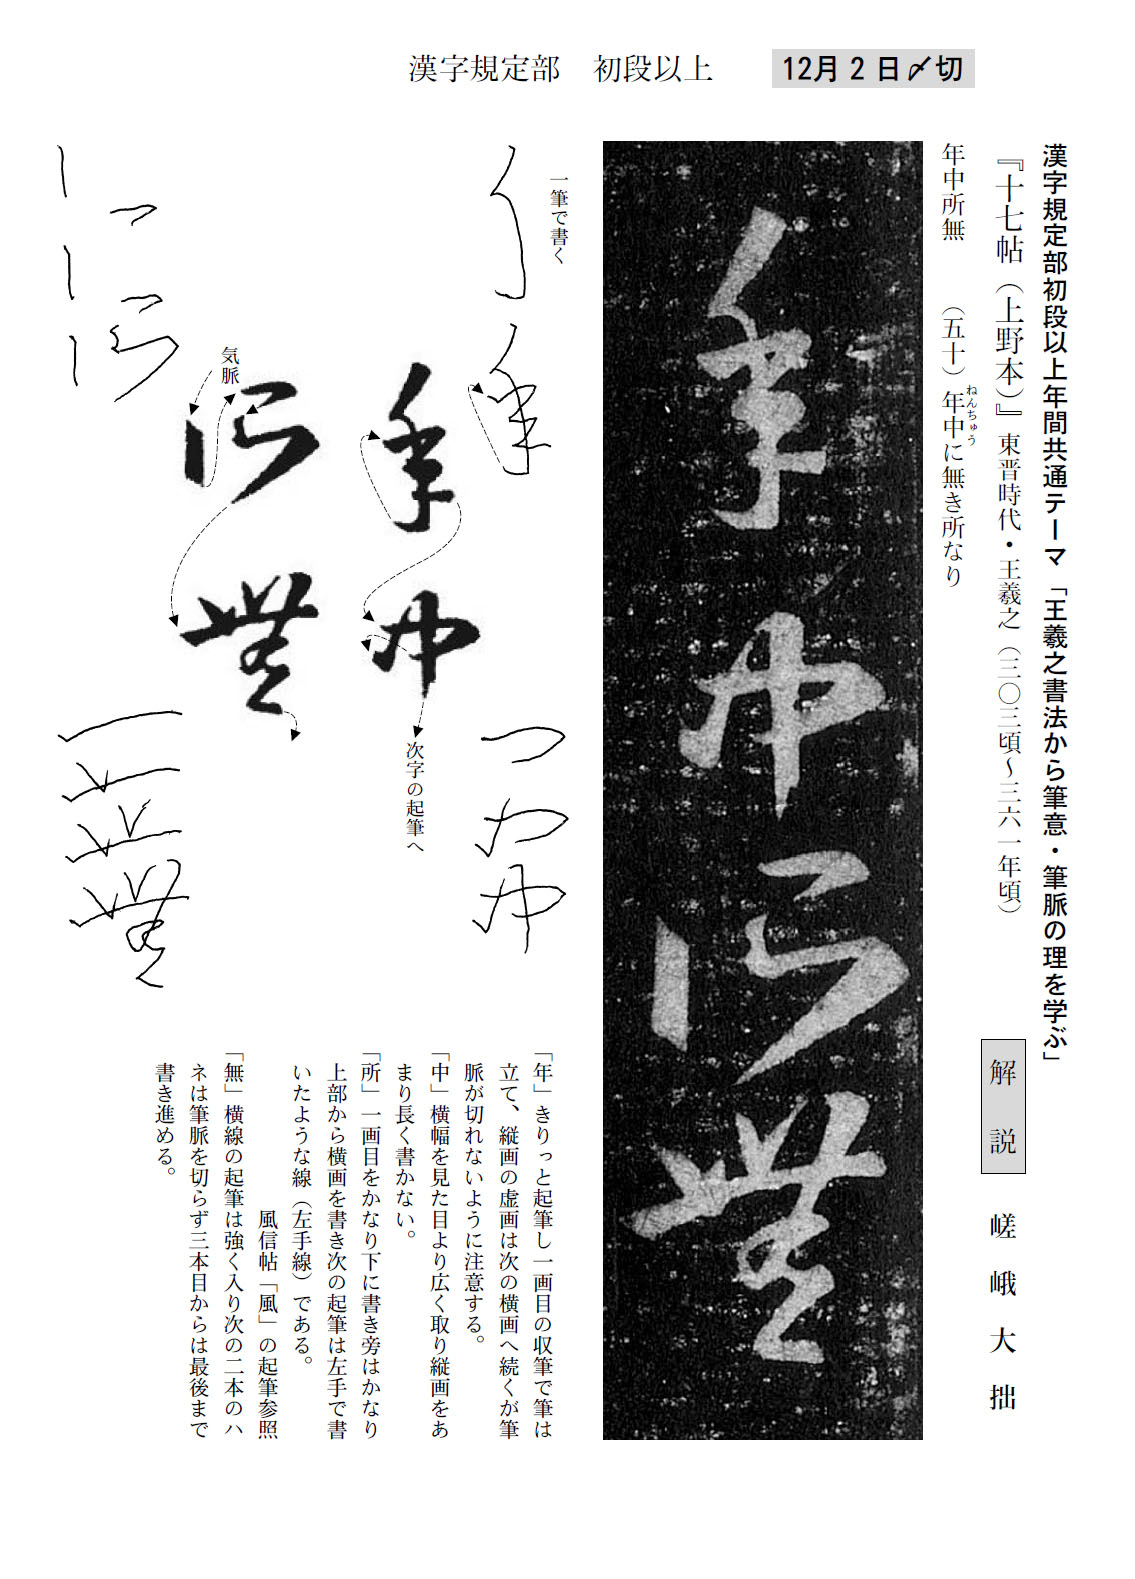 漢字規定部　初段以上
12月２日〆切
漢字規定部初段以上年間共通テーマ「王羲之書法から筆意・筆脈の理を学ぶ」
『十七帖（上野本）』東晋時代・王羲之（三〇三頃〜三六一年頃）
解説　嵯峨大拙
年中所無　（五十）年中に無き所なり
ねんちゅう
年中所無
一筆で書く
年中
次字の起筆へ
気脈
所無
「年」きりっと起筆し一画目の収筆で筆は
立て、縦画の虚画は次の横画へ続くが筆
脈が切れないように注意する。
「中」横幅を見た目より広く取り縦画をあ
まり長く書かない。
「所」一画目をかなり下に書き旁はかなり
上部から横画を書き次の起筆は左手で書
いたような線（左手線）である。
風信帖「風」の起筆参照
「無」横線の起筆は強く入り次の二本のハ
ネは筆脈を切らず三本目からは最後まで
書き進める。